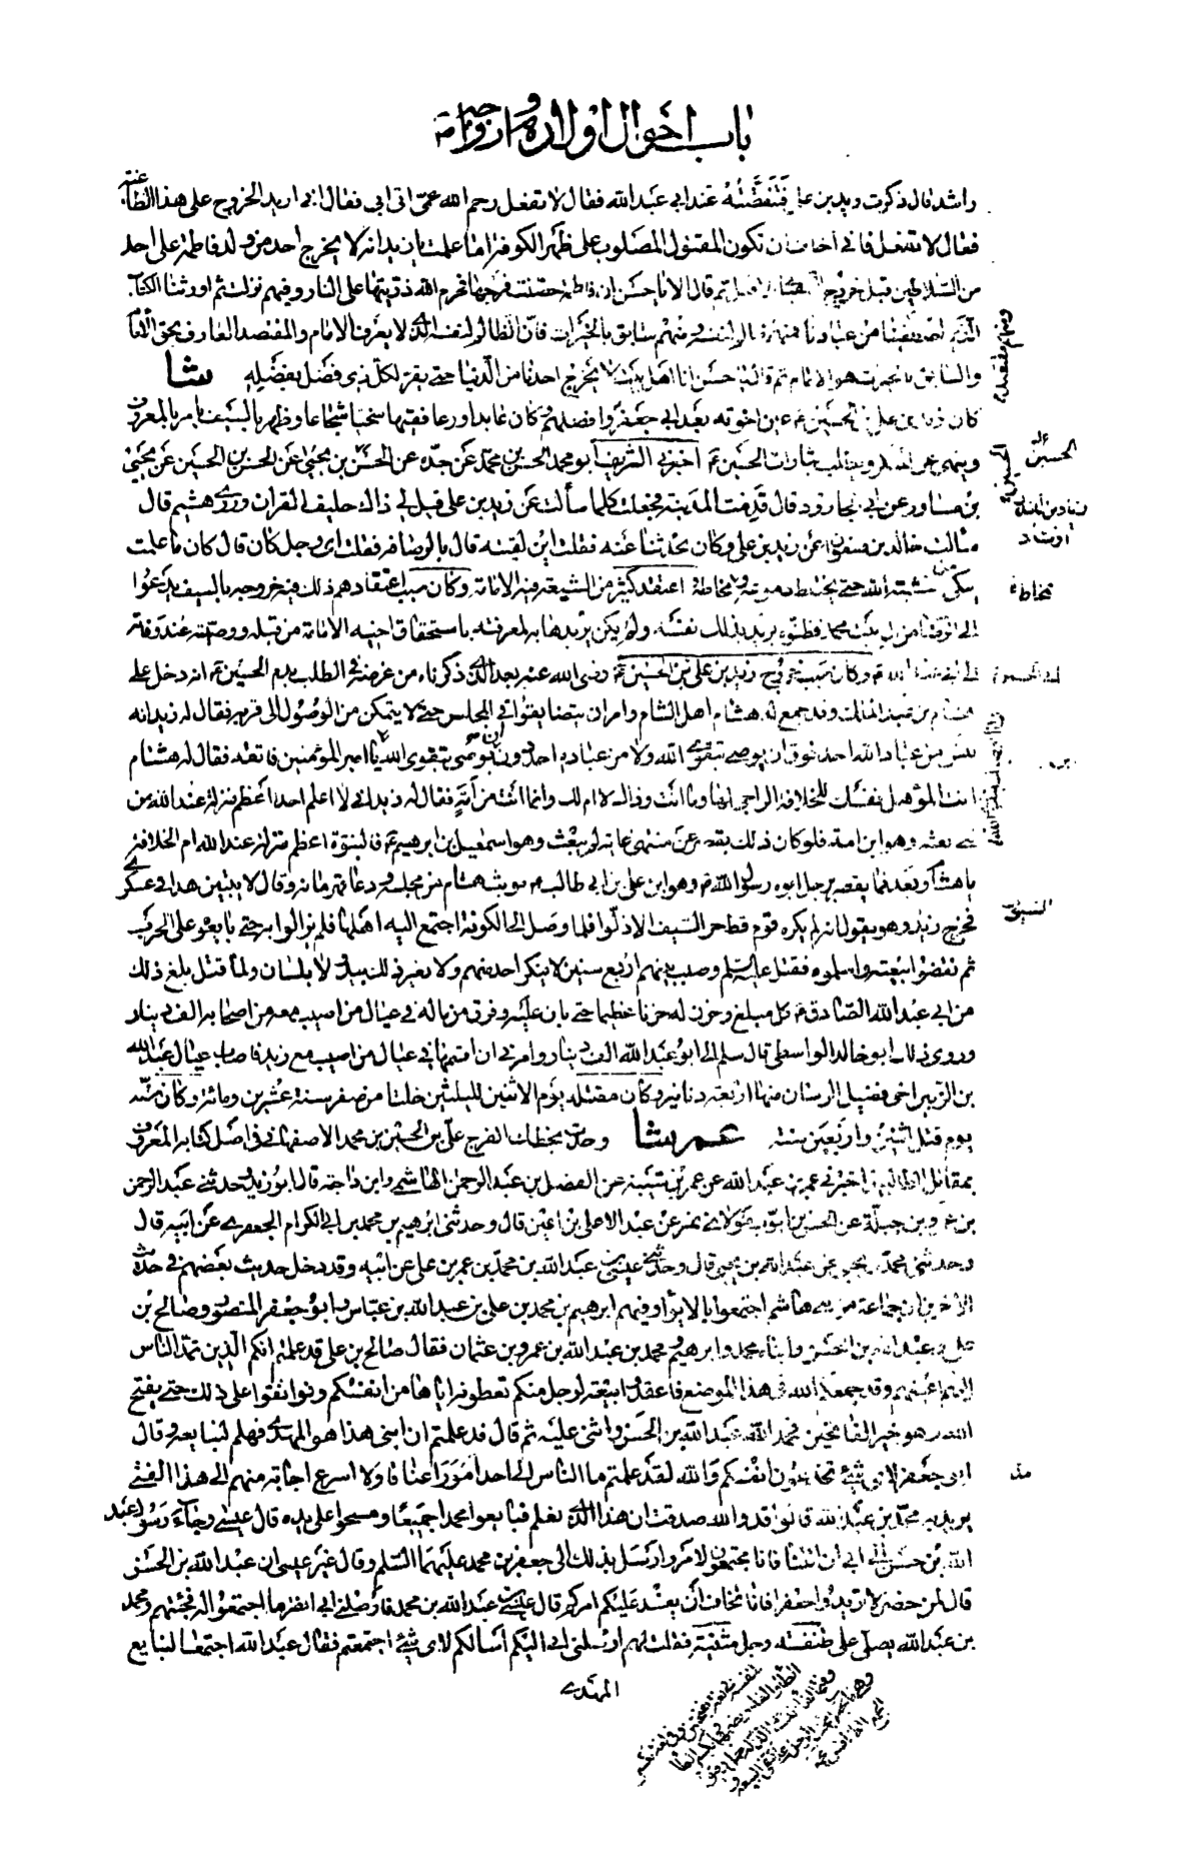 باب احوال اولاده وازواجه
راشد قال ذكرت زيد بن علي فتنقصته عند ابي عبد الله فقال لا تفعل رحم الله عمى اتى ابي فقال اني اريد الخروج على هذا الطاغية
فقال لا تفعل فاني اخاف ان تكون المقتول المصلوب على ظهر الكوفة اما علمت يا زيد انه لا يخرج احد من ولد فاطمة على احد
من السلاطين قبل خروج السفياني الا قتل ثم قال الا يا حسن ان فاطمة حصنت فرجها فحرم الله ذريتها على النار وفيهم نزلت ثم اورثنا الكتاب
الذين اصطفينا من عبادنا فمنهم ظالم لنفسه ومنهم سابق بالخيرات فان الظالم لنفسه الذي لا يعرف الامام والمقتصد العارف بحق الامام
والسابق بالخيرات هو الامام ثم قال يا حسن انا اهل بيت لا يخرج احدنا من الدنيا حتى يقر لكل ذي فضل بفضله شا
كان زيد بن علي بن الحسين ع عين اخوته بعد ابي جعفر وافضلهم وكان عابدا ورعا فقيها سخيا شجاعا وظهر بالسيف يامر بالمعروف
وينهى عن المنكر ويطلب بثارات الحسين ع اخبرني الشريف ابو محمد الحسن بن محمد عن جده عن الحسن بن يحيى عن الحسن بن الحسين عن يحيى
بن مساور عن ابي الجارود قال قدمت المدينة فجعلت كلما سألت عن زيد بن علي قيل لي ذاك حليف القران وروى هشيم قال
سألت خالد بن صفوان عن زيد بن علي وكان يحدثنا عنه فقلت اين لقيته قال بالرصافة فقلت اي رجل كان قال كان ما علمت
يبكي من خشية الله حتى يختلط دموعه بمخاطه واعتقد كثير من الشيعة فيه الامامة وكان سبب اعتقادهم ذلك فيه خروجه بالسيف يدعوا
الى الرضا من ال محمد فظنوه يريد بذلك نفسه ولم يكن يريدها به لمعرفته باستحقاق اخيه الامامة من قبله ووصيته عند وفاته
الى ابي عبد الله ع وكان سبب خروج زيد بن علي بن الحسين ع رضى الله عنه بعد الذي ذكرناه من غرضه في الطلب بدم الحسين ع انه دخل على
هشام بن عبد الملك وقد جمع له هشام اهل الشام وامر ان يتضايقوا في المجلس حتى لا يتمكن من الوصول الى قربه فقال له زيد انه
ليس من عباد الله احد فوق ان يوصى بتقوى الله ولا من عباده احد دون ان يوصى بتقوى الله يا امير المؤمنين فاتقه فقال له هشام
انت المؤهل نفسك للخلافة الراجي لها وما انت وذاك لا ام لك وانما انت من امة فقال له زيد اني لا اعلم احدا اعظم منزلة عند الله من
نبي بعثه وهو ابن امة فلو كان ذلك يقصر عن منتهى غاية لم يبعث وهو اسمعيل بن ابرهيم ع فالنبوة اعظم منزلة عند الله ام الخلافة
يا هشام وبعد فما يقصر برجل ابوه رسول الله ص وهو ابن علي بن ابي طالب ع فوثب هشام من مجلسه ودعا قهرمانه وقال لا يبيتن هذا في عسكري
فخرج زيد وهو يقول انه لم يكره قوم قط حر السيف الا ذلوا فلما وصل الى الكوفة اجتمع اليه اهلها فلم يزالوا به حتى بايعوه على الحرب
ثم نقضوا بيعته واسلموه فقتل عليه السلم وصلب بينهم اربع سنين لا ينكر احد منهم ولا يغير ذلك بيد ولا بلسان ولما قتل بلغ ذلك
من ابي عبد الله الصادق ع كل مبلغ وحزن له حزنا عظيما حتى بان عليه وفرق من ماله في عيال من اصيب معه من اصحابه الف دينار
وروى ذلك ابو خالد الواسطي قال سلم الى ابو عبد الله الف دينار وامرني ان اقسمها في عيال من اصيب مع زيد فاصاب عيال عبد الله
بن الزبير اخي فضيل الرسان منها اربعة دنانير وكان مقتله يوم الاثنين لليلتين خلتا من صفر سنة عشرين ومائة وكان سنه
يوم قتل اثنين واربعين سنة عم شا وجدت بخط ابي الفرج علي بن الحسين بن محمد الاصفهاني في اصل كتابه المعروف
بمقاتل الطالبيين اخبرني عمر بن عبد الله عن عمر بن شبة عن الفضل بن عبد الرحمن الهاشمي وابن داجة قال ابو زيد وحدثني عبد الرحمن
بن عمرو بن جبلة عن الحسن بن ايوب مولى بني نمير عن عبد الاعلى بن اعين قال وحدثني ابرهيم بن محمد بن ابي الكرام الجعفري عن ابيه قال
وحدثني محمد بن يحيى عن عبد الله بن يحيى قال وحدثني عيسى بن عبد الله بن محمد بن عمر بن علي عن ابيه وقد دخل حديث بعضهم في حديث
الاخرين ان جماعة من بني هاشم اجتمعوا بالابواء وفيهم ابرهيم بن محمد بن علي بن عبد الله بن عباس وابو جعفر المنصور وصالح بن
علي وعبد الله بن الحسن وابناه محمد وابرهيم ومحمد بن عبد الله بن عمرو بن عثمان فقال صالح بن علي قد علمتم انكم الذين تمد الناس
اليهم اعينهم وقد جمعكم الله في هذا الموضع فاعقدوا بيعة لرجل منكم تعطونه اياها من انفسكم وتواثقوا على ذلك حتى يفتح
الله وهو خير الفاتحين فحمد الله عبد الله بن الحسن واثنى عليه ثم قال قد علمتم ان ابني هذا هو المهدي فهلم لنبايعه وقال
ابو جعفر لاي شئ تخدعون انفسكم والله لقد علمتم ما الناس الى احد امور اعناقا ولا اسرع اجابة منهم الى هذا الفتى
يريد به محمد بن عبد الله قالوا قد والله صدقت ان هذا الذي نعلم فبايعوا محمدا جميعا ومسحوا على يده قال عيسى وجاء رسول عبد
الله بن حسن الى ابي ان ائتنا فانا مجتمعون لامر وارسل بذلك الى جعفر بن محمد عليهما السلم وقال غير عيسى ان عبد الله بن الحسن
قال لمن حضر لا تريدوا جعفرا فانا نخاف ان يفسد عليكم امركم قال عيسى بن عبد الله بن محمد فارسلني ابي انظر ما اجتمعوا له فجئتهم ومحمد
بن عبد الله يصلي على طنفسة رحل مثنية فقلت لهم ارسلني ابي اليكم اسألكم لاي شئ اجتمعتم فقال عبد الله اجتمعنا لنبايع
المهدي
ومنهم مقتصد
الحسين
الحسين
زياد بن المنذر
بمخاطه
السيوف